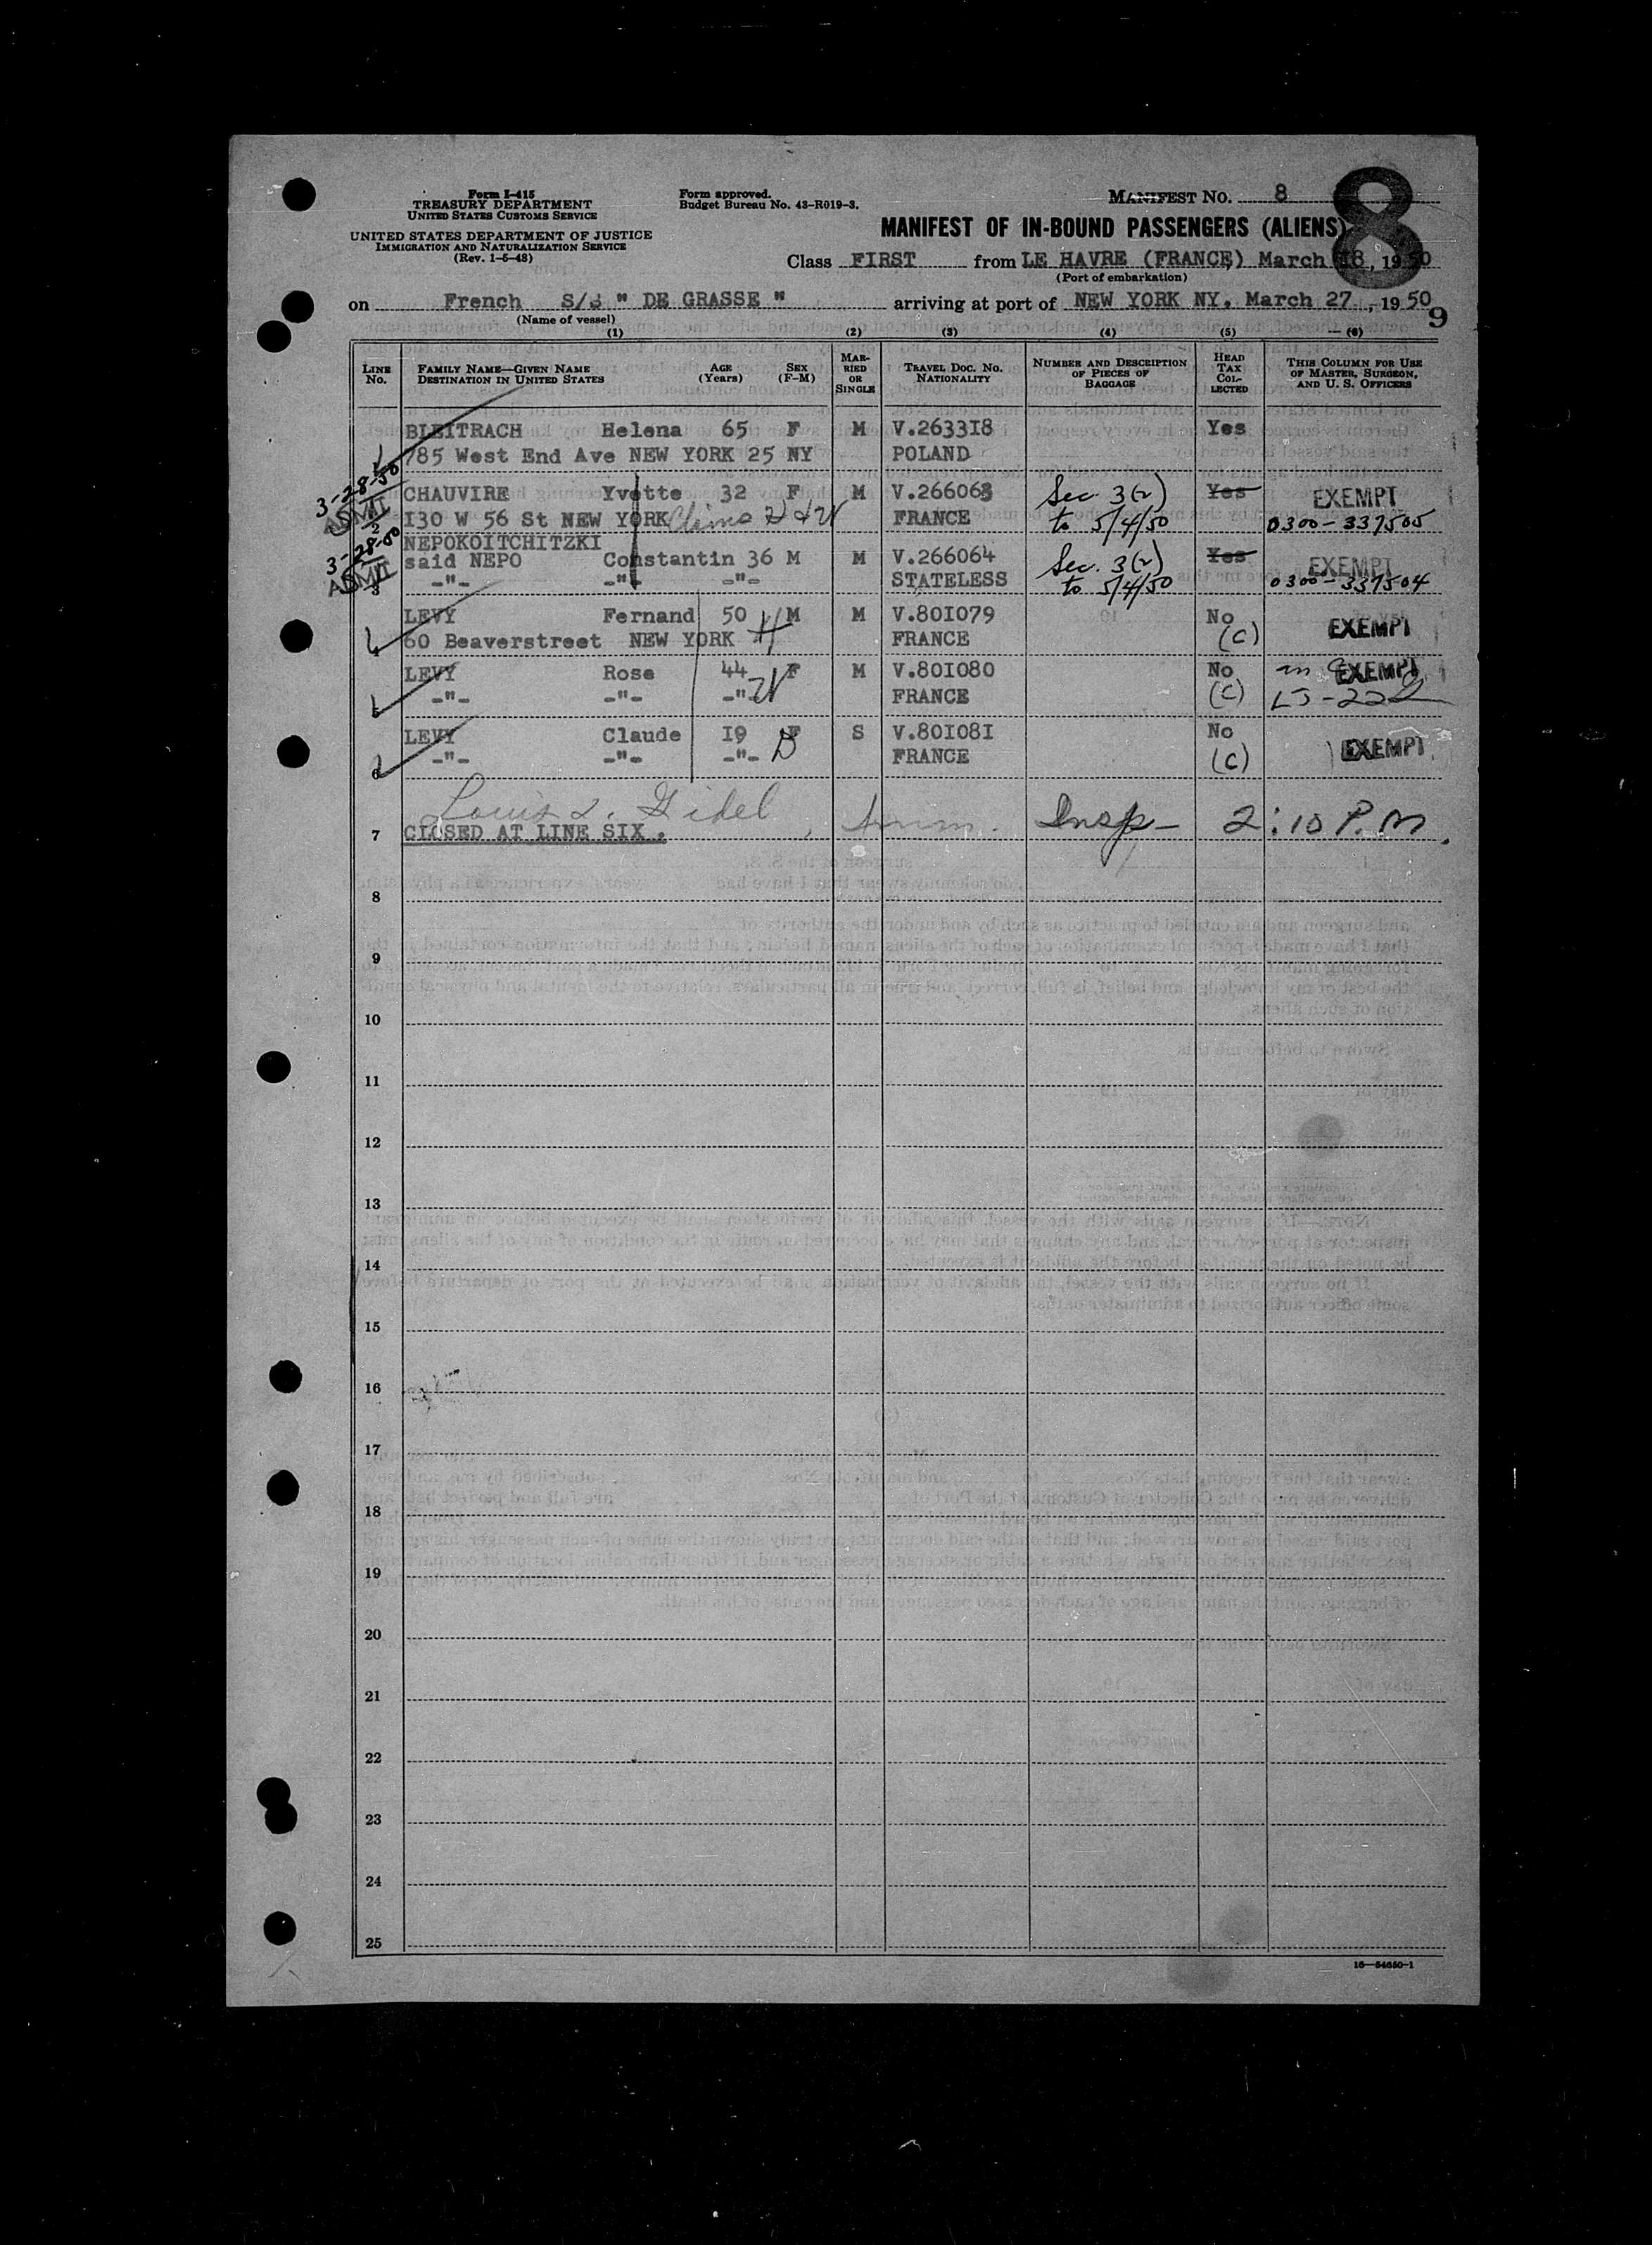 Form I-415
TREASURY DEPARTMENT
UNITED STATES CUSTOMS SERVICE
UNITED STATES DEPARTMENT OF JUSTICE
IMMIGRATION AND NATURALIZATION SERVICE
(Rev. 1-5-48)
Form approved.
Budget Bureau No. 43-R019-3.
MANIFEST NO. 8
8
MANIFEST OF IN-BOUND PASSENGERS (ALIENS)
Class FIRST from LE HAVRE (FRANCE) March 18, 1950
(Port of embarkation)
on French S/S " DE GRASSE " arriving at port of NEW YORK NY. March 27, 1950
(Name of vessel)
9
(1) (2) (3) (4) (5) (6)
LINE No. FAMILY NAME—GIVEN NAME DESTINATION IN UNITED STATES AGE (Years) SEX (F-M) MARRIED OR SINGLE TRAVEL DOC. NO. NATIONALITY NUMBER AND DESCRIPTION OF PIECES OF BAGGAGE HEAD TAX COLLECTED THIS COLUMN FOR USE OF MASTER, SURGEON, AND U. S. OFFICERS
BLEITRACH Helena 65 F M V.263318 Yes
1 785 West End Ave NEW YORK 25 NY POLAND
3-28-50 CHAUVIRE Yvette 32 F M V.266063 Sec. 3(2) Yes EXEMPT
ADMIT 2 130 W 56 St NEW YORK FRANCE to 5/4/50 0300-337505
NEPOKOITCHITZKI
3-28-50 said NEPO Constantin 36 M M V.266064 Sec. 3(2) Yes EXEMPT
ADMIT 3 -"- -"- -"- STATELESS to 5/4/50 0300-337504
LEVY Fernand 50 M M V.801079 No EXEMPT
4 60 Beaverstreet NEW YORK H FRANCE (C)
LEVY Rose 44 F M V.801080 No EXEMPT
5 -"- -"- -"- W FRANCE (C)
LEVY Claude 19 F S V.801081 No EXEMPT
6 -"- -"- -"- D FRANCE (C)
Louis L. Gidel, Imm. Insp- 2:10 P.M.
7 CLOSED AT LINE SIX.
8
9
10
11
12
13
14
15
16
17
18
19
20
21
22
23
24
25
16—54650-1